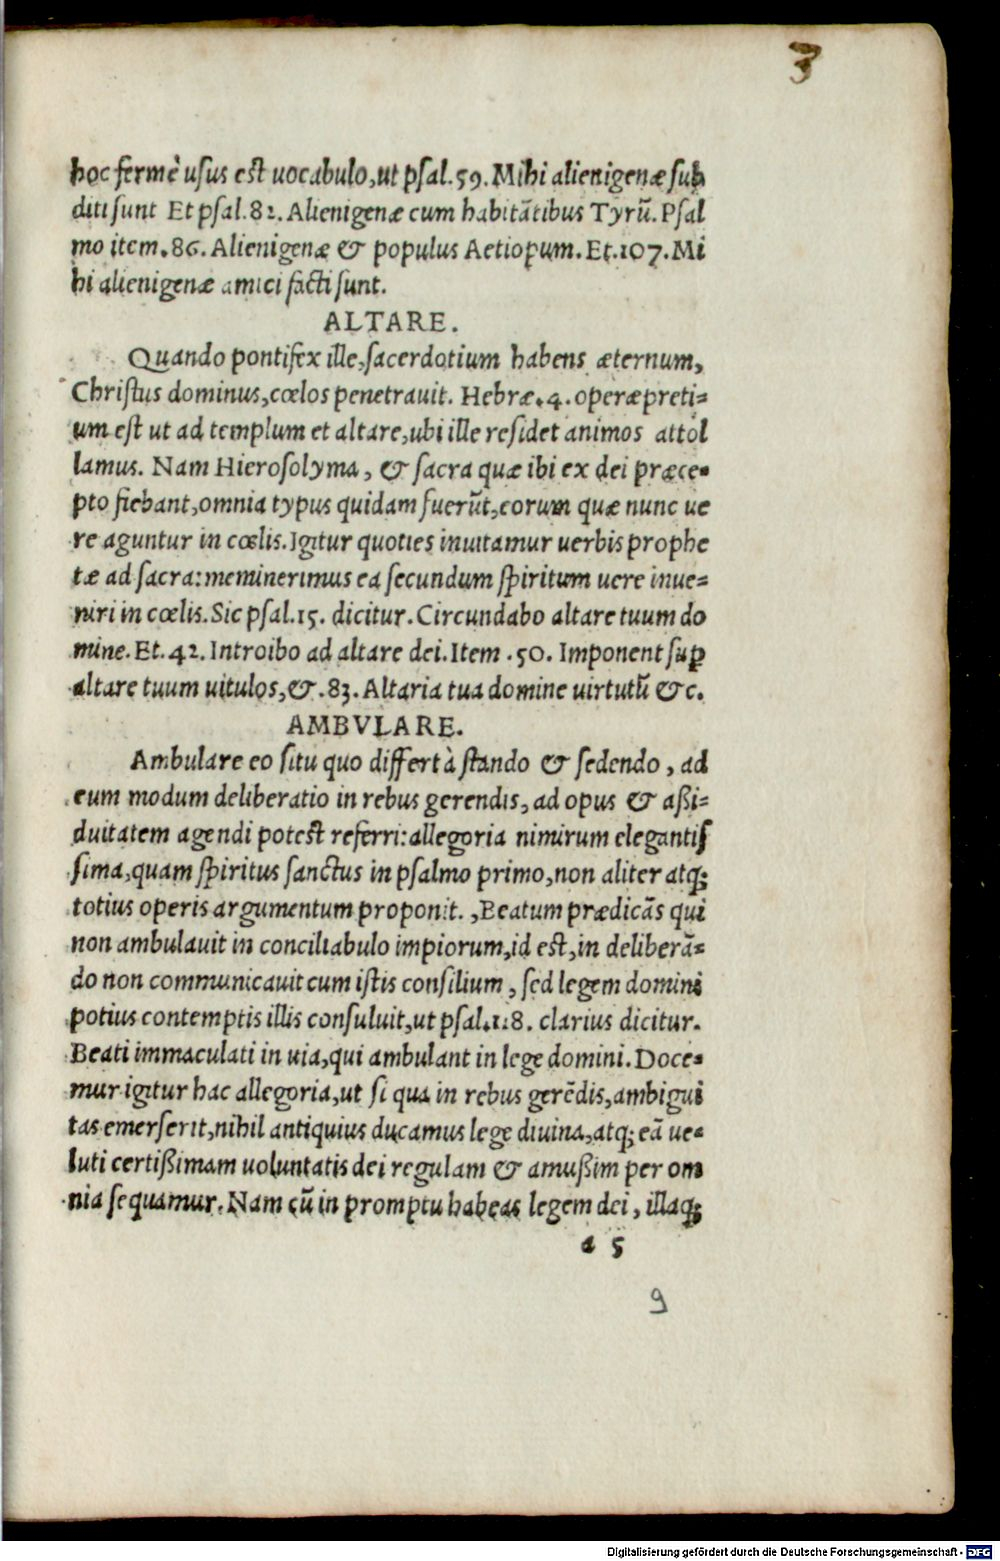 3
hoc fermè usus est uocabulo,ut psal.59.Mihi alienigenæ sub
diti sunt Et psal.82.Alienigenæ cum habitãtibus Tyrũ.Psal
mo item.86.Alienigenæ & populus Aetiopum.Et.107.Mi
hi alienigenæ amici facti sunt.
ALTARE.
Quando pontifex ille,sacerdotium habens æternum,
Christus dominus,cœlos penetrauit. Hebræ.4.operæpreti=
um est ut ad templum et altare,ubi ille residet animos attol
lamus. Nam Hierosolyma, & sacra quæ ibi ex dei præce=
pto fiebant,omnia typus quidam fuerũt,eorum quæ nunc ue
re aguntur in cœlis.Igitur quoties inuitamur uerbis prophe
tæ ad sacra:meminerimus ea secundum spiritum uere inue=
niri in cœlis.Sic psal.15. dicitur.Circundabo altare tuum do
mine.Et.42.Introibo ad altare dei.Item .50. Imponent suꝑ
altare tuum uitulos,&.83.Altaria tua domine uirtutũ &c.
AMBVLARE.
Ambulare eo situ quo differt à stando & sedendo, ad
eum modum deliberatio in rebus gerendis, ad opus & aßi=
duitatem agendi potest referri:allegoria nimirum elegantis
sima,quam spiritus sanctus in psalmo primo,non aliter atq;
totius operis argumentum proponit. ,Beatum prædicãs qui
non ambulauit in conciliabulo impiorum,id est,in deliberã=
do non communicauit cum istis consilium, sed legem domini
potius contemptis illis consuluit,ut psal.118. clarius dicitur.
Beati immaculati in uia,qui ambulant in lege domini.Doce=
mur igitur hac allegoria,ut si qua in rebus gerẽdis,ambigui
tas emerserit,nihil antiquius ducamus lege diuina,atq; eã ue=
luti certißimam uoluntatis dei regulam & amußim per om
nia sequamur.Nam cũ in promptu habeas legem dei, illaq;
a 5
9
Digitalisierung gefördert durch die Deutsche Forschungsgemeinschaft - DFG